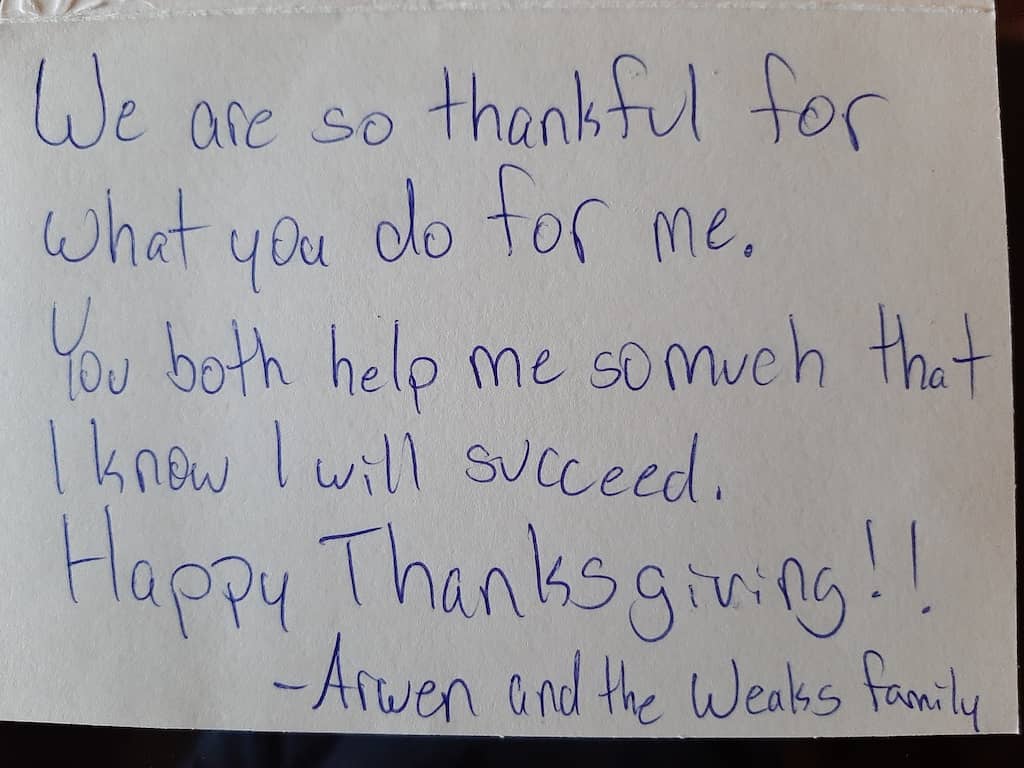 We are so thankful for
what you do for me.
You both help me so much that
I know I will succeed.
Happy Thanksgiving!!
-Arwen and the Weaks family